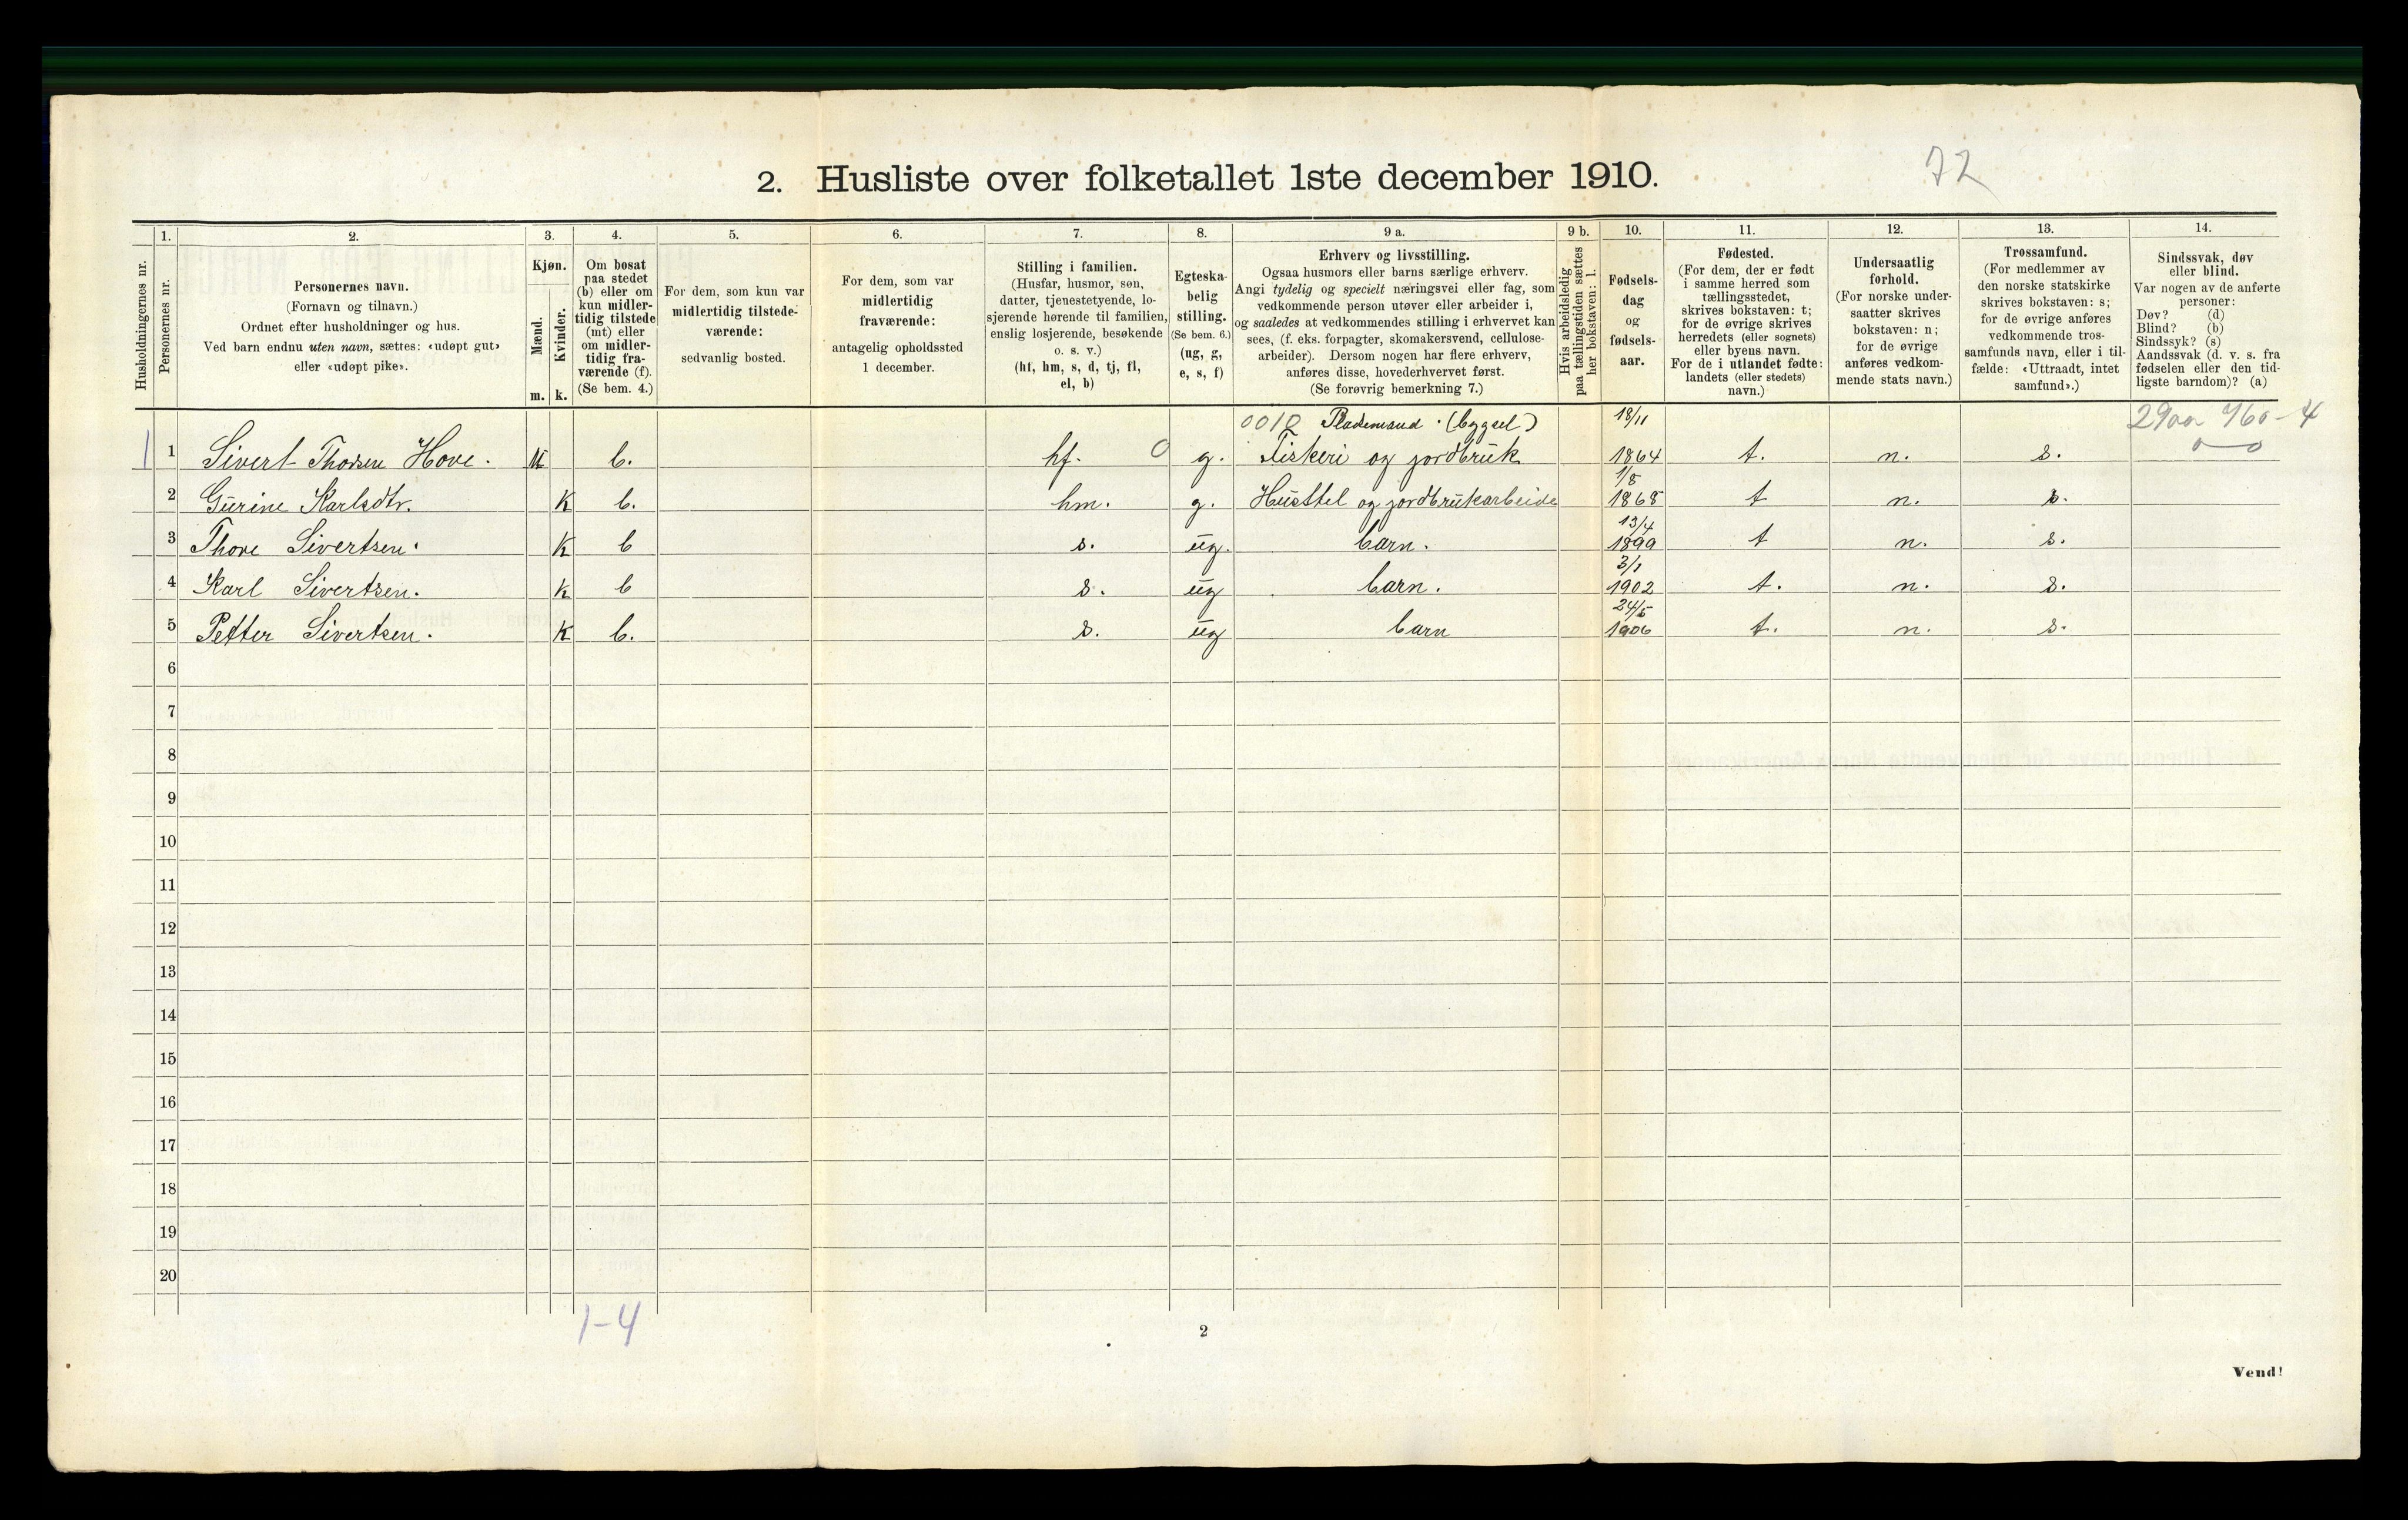 72
2. Husliste over folketallet 1ste december 1910.
Husholdningernes nr.
1.
Personernes nr.
2.
Personernes navn.
(Fornavn og tilnavn.)
Ordnet efter husholdninger og hus.
Ved barn endnu uten navn, sættes: «udøpt gut»
eller «udøpt pike».
3.
Kjøn.
Mænd.
Kvinder.
m. k.
4.
Om bosat
paa stedet
(b) eller om
kun midler-
tidig tilstede
(mt) eller
om midler-
tidig fra-
værende (f).
(Se bem. 4.)
5.
For dem, som kun var
midlertidig tilstede-
værende:
sedvanlig bosted.
6.
For dem, som var
midlertidig
fraværende:
antagelig opholdssted
1 december.
7.
Stilling i familien.
(Husfar, husmor, søn,
datter, tjenestetyende, lo-
sjerende hørende til familien,
enslig losjerende, besøkende
o. s. v.)
(hf, hm, s, d, tj, fl,
el, b)
8.
Egteska-
belig
stilling.
(Se bem. 6.)
(ug, g,
e, s, f)
9 a.
Erhverv og livsstilling.
Ogsaa husmors eller barns særlige erhverv.
Angi tydelig og specielt næringsvei eller fag, som
vedkommende person utøver eller arbeider i,
og saaledes at vedkommendes stilling i erhvervet kan
sees, (f. eks. forpagter, skomakersvend, cellulose-
arbeider). Dersom nogen har flere erhverv,
anføres disse, hovederhvervet først.
(Se forøvrig bemerkning 7.)
9 b.
Hvis arbeidsledig
paa tællingstiden sættes
her bokstaven: l.
10.
Fødsels-
dag
og
fødsels-
aar.
11.
Fødested.
(For dem, der er født
i samme herred som
tællingsstedet,
skrives bokstaven: t;
for de øvrige skrives
herredets (eller sognets)
eller byens navn.
For de i utlandet fødte:
landets (eller stedets)
navn.)
12.
Undersaatlig
forhold.
(For norske under-
saatter skrives
bokstaven: n;
for de øvrige
anføres vedkom-
mende stats navn.)
13.
Trossamfund.
(For medlemmer av
den norske statskirke
skrives bokstaven: s;
for de øvrige anføres
vedkommende tros-
samfunds navn, eller i til-
fælde: «Uttraadt, intet
samfund».)
14.
Sindssvak, døv
eller blind.
Var nogen av de anførte
personer:
Døv? (d)
Blind? (b)
Sindssyk? (s)
Aandssvak (d. v. s. fra
fødselen eller den tid-
ligste barndom)? (a)
0010 (bygsel) 18/11
1 1 Sivert Thorsen Hove. M b. hf. 0 g. Fiskeri og jordbruk 1864 t. n. s.
1/8
2 Gurine Karlsdtr. K b. hm. g. Husstel og jordbrukarbeide 1868 t n. s.
13/4
3 Thore Sivertsen. K b s. ug. barn. 1899 t n. s.
3/1
4 Karl Sivertsen. K b s. ug barn. 1902 t. n. s.
24/5
5 Petter Sivertsen. K b. s. ug barn 1906 t. n. s.
6
7
8
9
10
11
12
13
14
15
16
17
18
19
20
1-4
2
Vend!